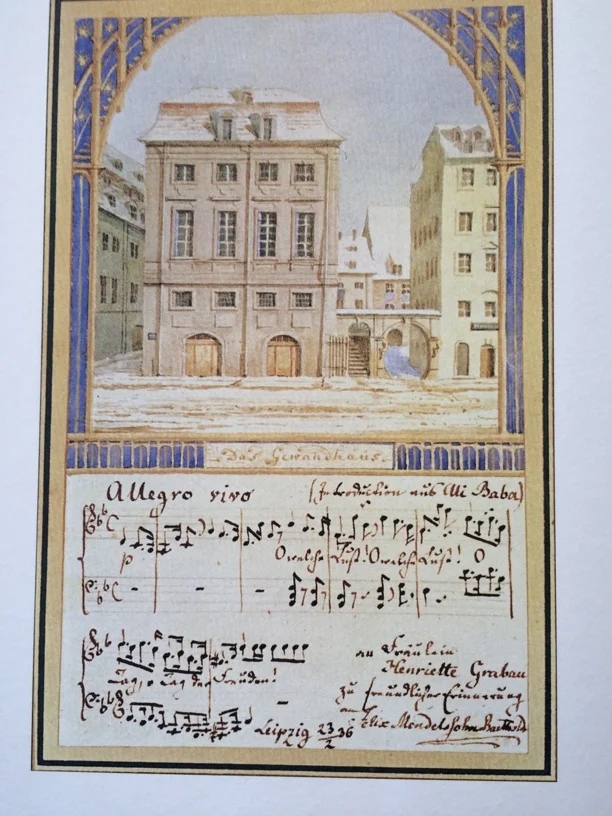 Das Gewandhaus.
Allegro vivo (Introduction aus Ali Baba)
p O welche Lust! O welche Lust! O
Tag, o Tag der Freuden!
an Fräulein
Henriette Grabau
zu freundlicher Erinnerung
an
Felix Mendelssohn Bartholdy
Leipzig 23/2 36